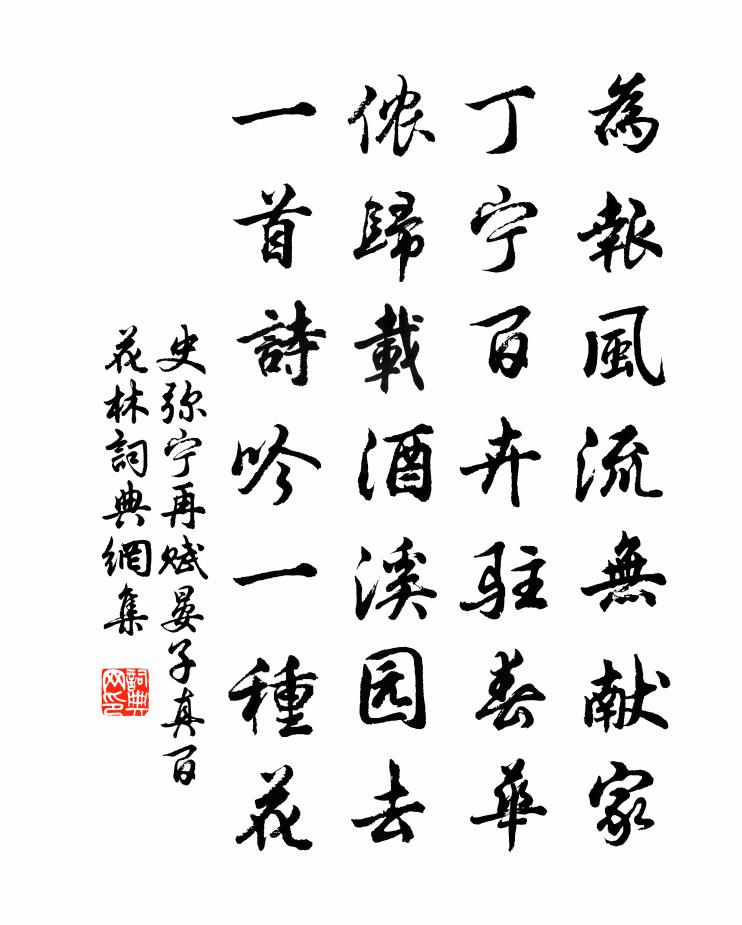 為報風流無献家
丁宁百卉駐春華
侬歸載酒溪园去
一首詩吟一種花
史弥宁再赋晏子真百
花林詞典網集
詞典
网印